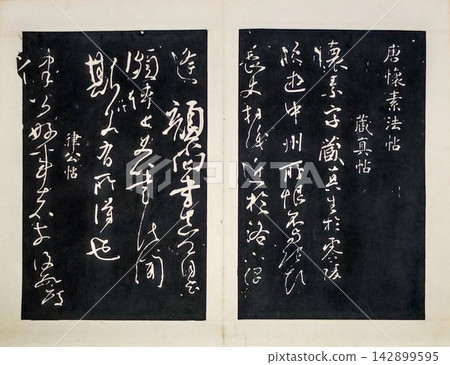 唐懷素法帖
藏真帖
懷素字藏真生於零陵
晚遊中州所恨不與張顛
長史相識近於洛下偶
逢顏尚書真卿自云
頗傳長史筆法聞
斯八法若有所得也
律公帖
律公好事者前後
142899595